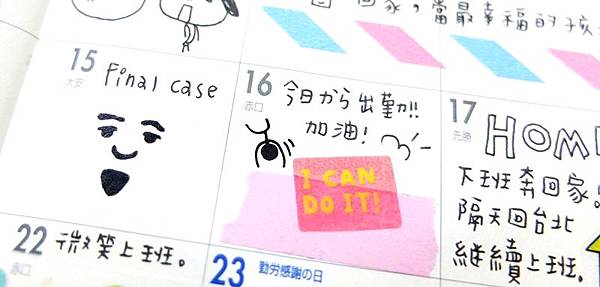 回家,當最幸福的孩
15
大安
Final case
16
赤口
今日から出勤!!
加油!
I CAN
DO IT!
17
先勝
HOME
下班奔回家
隔天回台北
繼續上班。
22
赤口
微笑上班。
23
勤労感謝の日